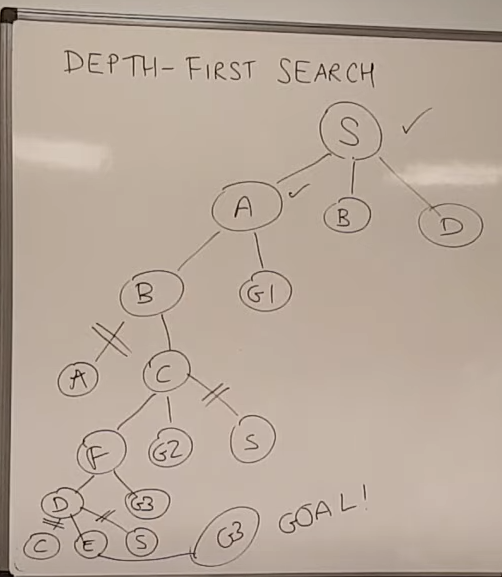 DEPTH-FIRST SEARCH
S
A B D
B G1
A C
F G2 S
D G3
C E S G3 GOAL!